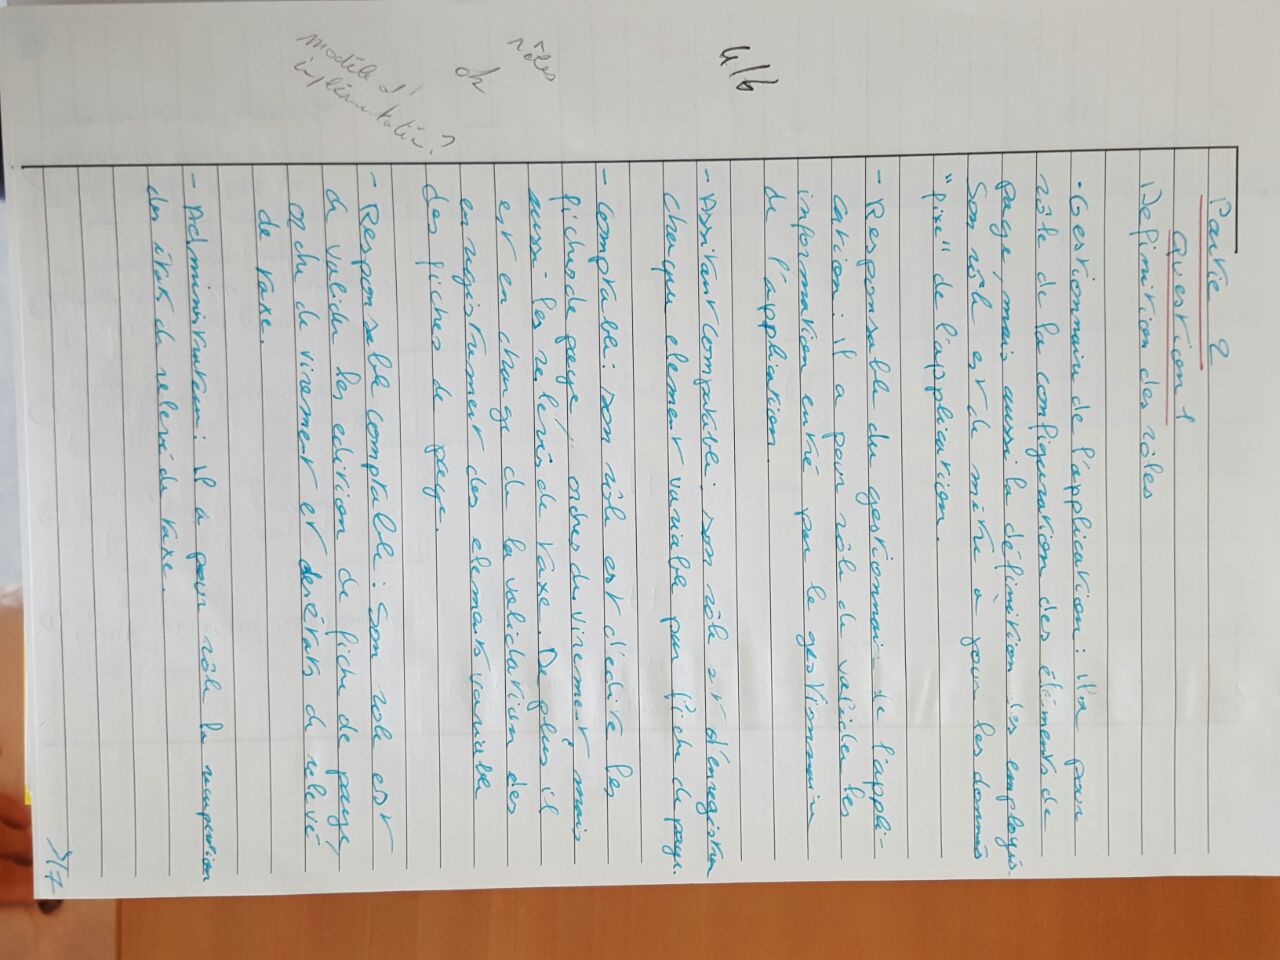 Partie 2
Question 1
Definition des rôles
• Gestionnaire de l'application : il a pour
rôle de la configuration des éléments de
paye, mais aussi la définition des employés.
Son rôle est de mètre à jour les donnés
"fixe" de l'application.
- Responsable du gestionnaire de l'appli-
cation : il a pour rôle de valider les
information entré par le gestionnaire
de l'application.
- Assitant comptable : son rôle est d'enregistrer
chaque element variable par fiche de paye.
- Comptable : son rôle est d'edité les
fiches de paye, ordres du virement, mais
aussi les relevés de taxe. De plus il
est en charge de la validation des
enregistrement des elements variable
des fiches de paye.
- Responsable comptable : Son role est
de valider les edition de fiche de paye,
ordre de virement et des états de relevé
de taxe.
- Administrateur : il a pour rôle la recuperation
des états de relevé de taxe.
4/6
rôles
ok
modèle d'
implémentation ?